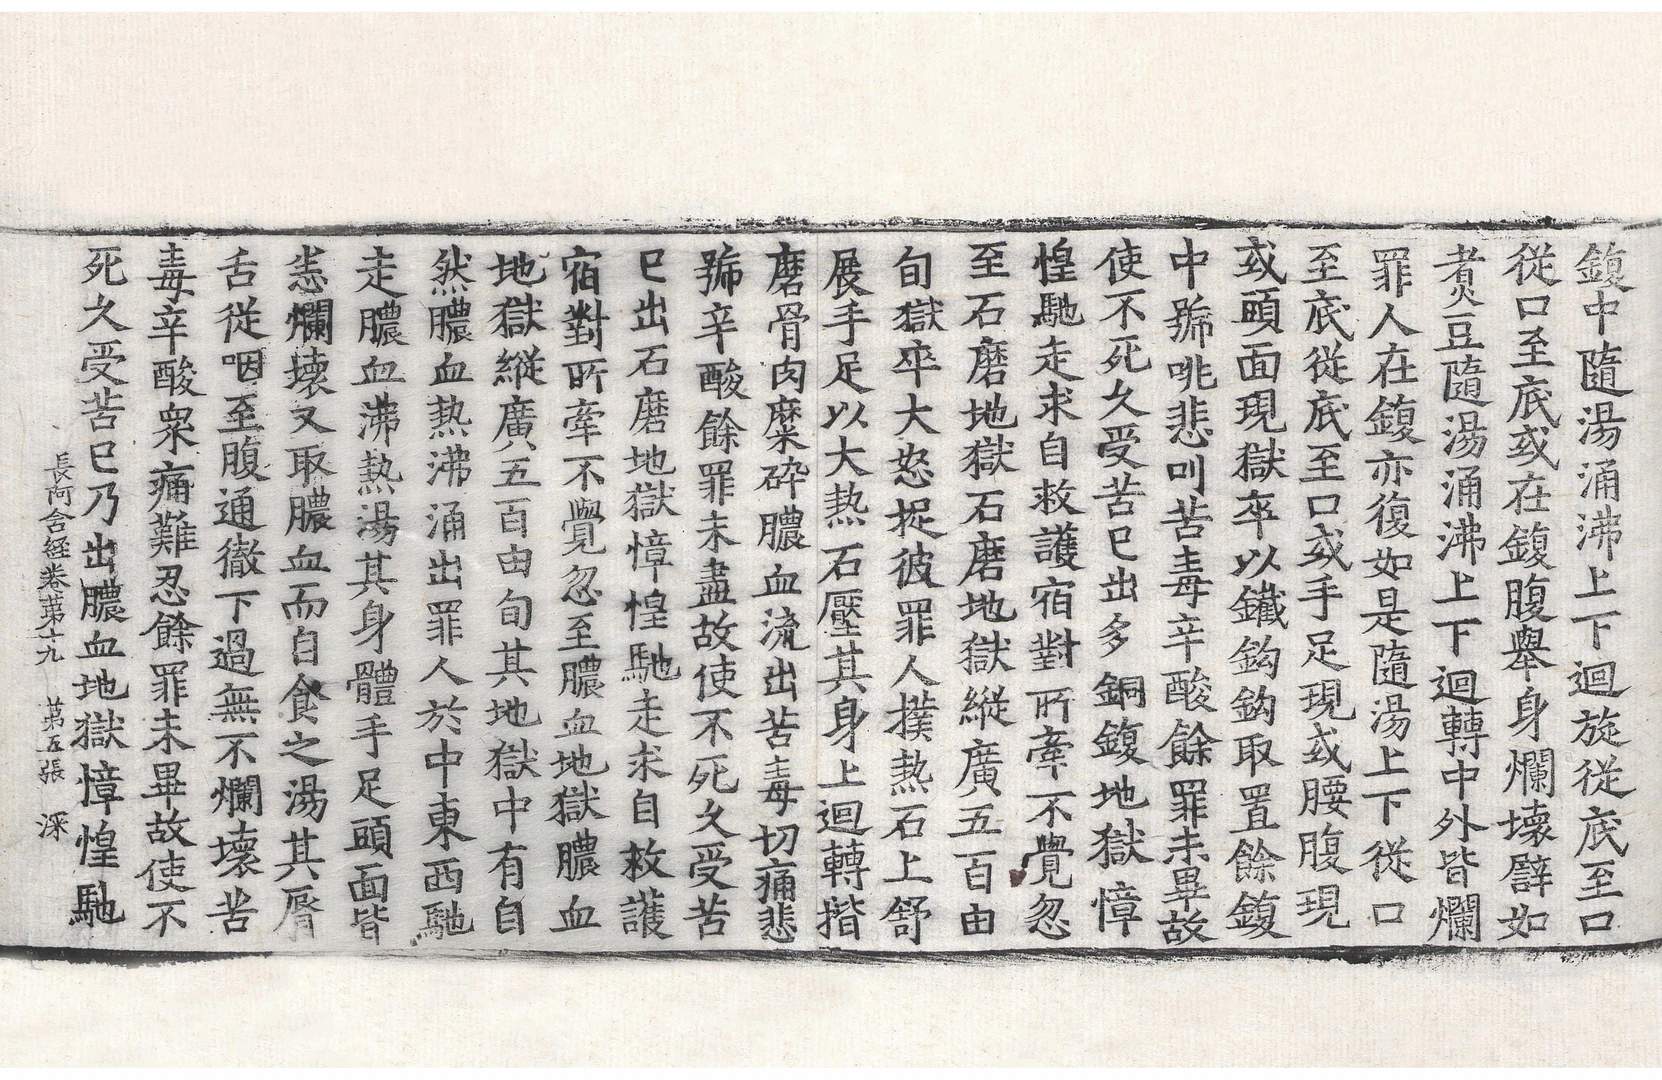 鍑中隨湯涌沸上下迴旋從底至口
從口至底或在鍑腹舉身爛壞譬如
煮豆隨湯涌沸上下迴轉中外皆爛
罪人在鍑亦復如是隨湯上下從口
至底從底至口或手足現或腰腹現
或頭面現獄卒以鐵鉤鉤取置餘鍑
中號咷悲叫苦毒辛酸餘罪未畢故
使不死久受苦已出多銅鍑地獄慞
惶馳走求自救護宿對所牽不覺忽
至石磨地獄石磨地獄縱廣五百由
旬獄卒大怒捉彼罪人撲熱石上舒
展手足以大熱石壓其身上迴轉揩
磨骨肉糜碎膿血流出苦毒切痛悲
號辛酸餘罪未盡故使不死久受苦
已出石磨地獄慞惶馳走求自救護
宿對所牽不覺忽至膿血地獄膿血
地獄縱廣五百由旬其地獄中有自
然膿血熱沸涌出罪人於中東西馳
走膿血沸熱湯其身體手足頭面皆
悉爛壞又取膿血而自食之湯其脣
舌從咽至腹通徹下過無不爛壞苦
毒辛酸衆痛難忍餘罪未畢故使不
死久受苦已乃出膿血地獄慞惶馳
長阿含経卷第十九　第五張　深